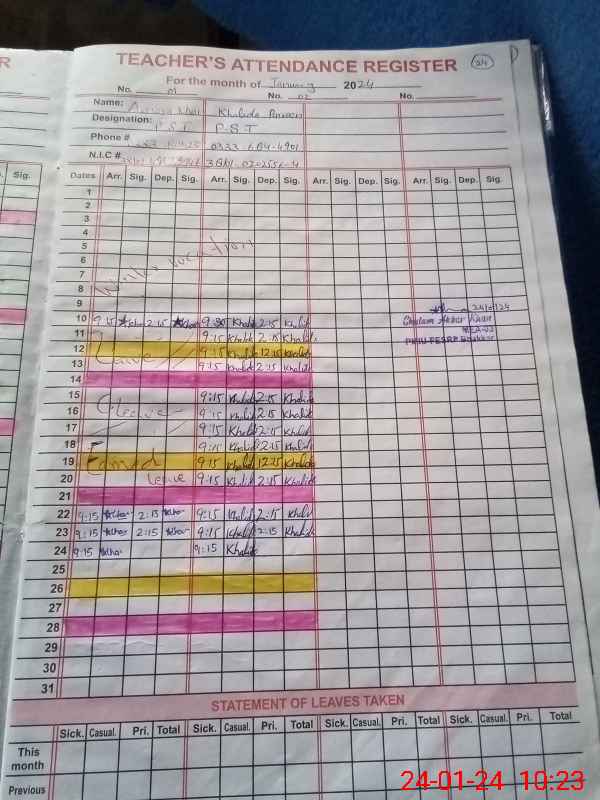 R
TEACHER'S ATTENDANCE REGISTER 24
For the month of January 2024
No. 01 No. 02 No.
Name: Khalida Parveen
Designation: P.S.T P.S.T
Phone # 0333-684-4901
N.I.C #
Sig. Dates Arr. Sig. Dep. Sig. Arr. Sig. Dep. Sig. Arr. Sig. Dep. Sig. Arr. Sig. Dep. Sig.
1
2
3
4
5
6
7
8 Winter vacation
9
10 9:15 2:15 9:30 Khalid 2:15 Khalid 24/01/24
Ghulam Akbar Khan
11 9:15 Khalid 2:15 Khalida
MEA-02
12 Leave 9:15 Khalid 12:15 Khalida
PMIU-PESRP Bhakkar
13 9:15 Khalid 2:15 Khalid
14
15 9:15 Khalid 2:15 Khalid
16 C leave 9:15 Khalid 2:15 Khalid
17 9:15 Khalid 2:15 Khalid
18 9:15 Khalid 2:15 Khalid
19 Earned 9:15 Khalid 12:15 Khalida
20 Leave 9:15 Khalid 2:15 Khalida
21
22 9:15 2:15 9:15 Khalid 2:15 Khalid
23 9:15 2:15 9:15 Khalid 2:15 Khalida
24 9:15 9:15 Khalid
25
26
27
28
29
30
31
STATEMENT OF LEAVES TAKEN
Sick. Casual. Pri. Total Sick. Casual. Pri. Total Sick. Casual. Pri. Total Sick. Casual. Pri. Total
This month
Previous
24-01-24 10:23